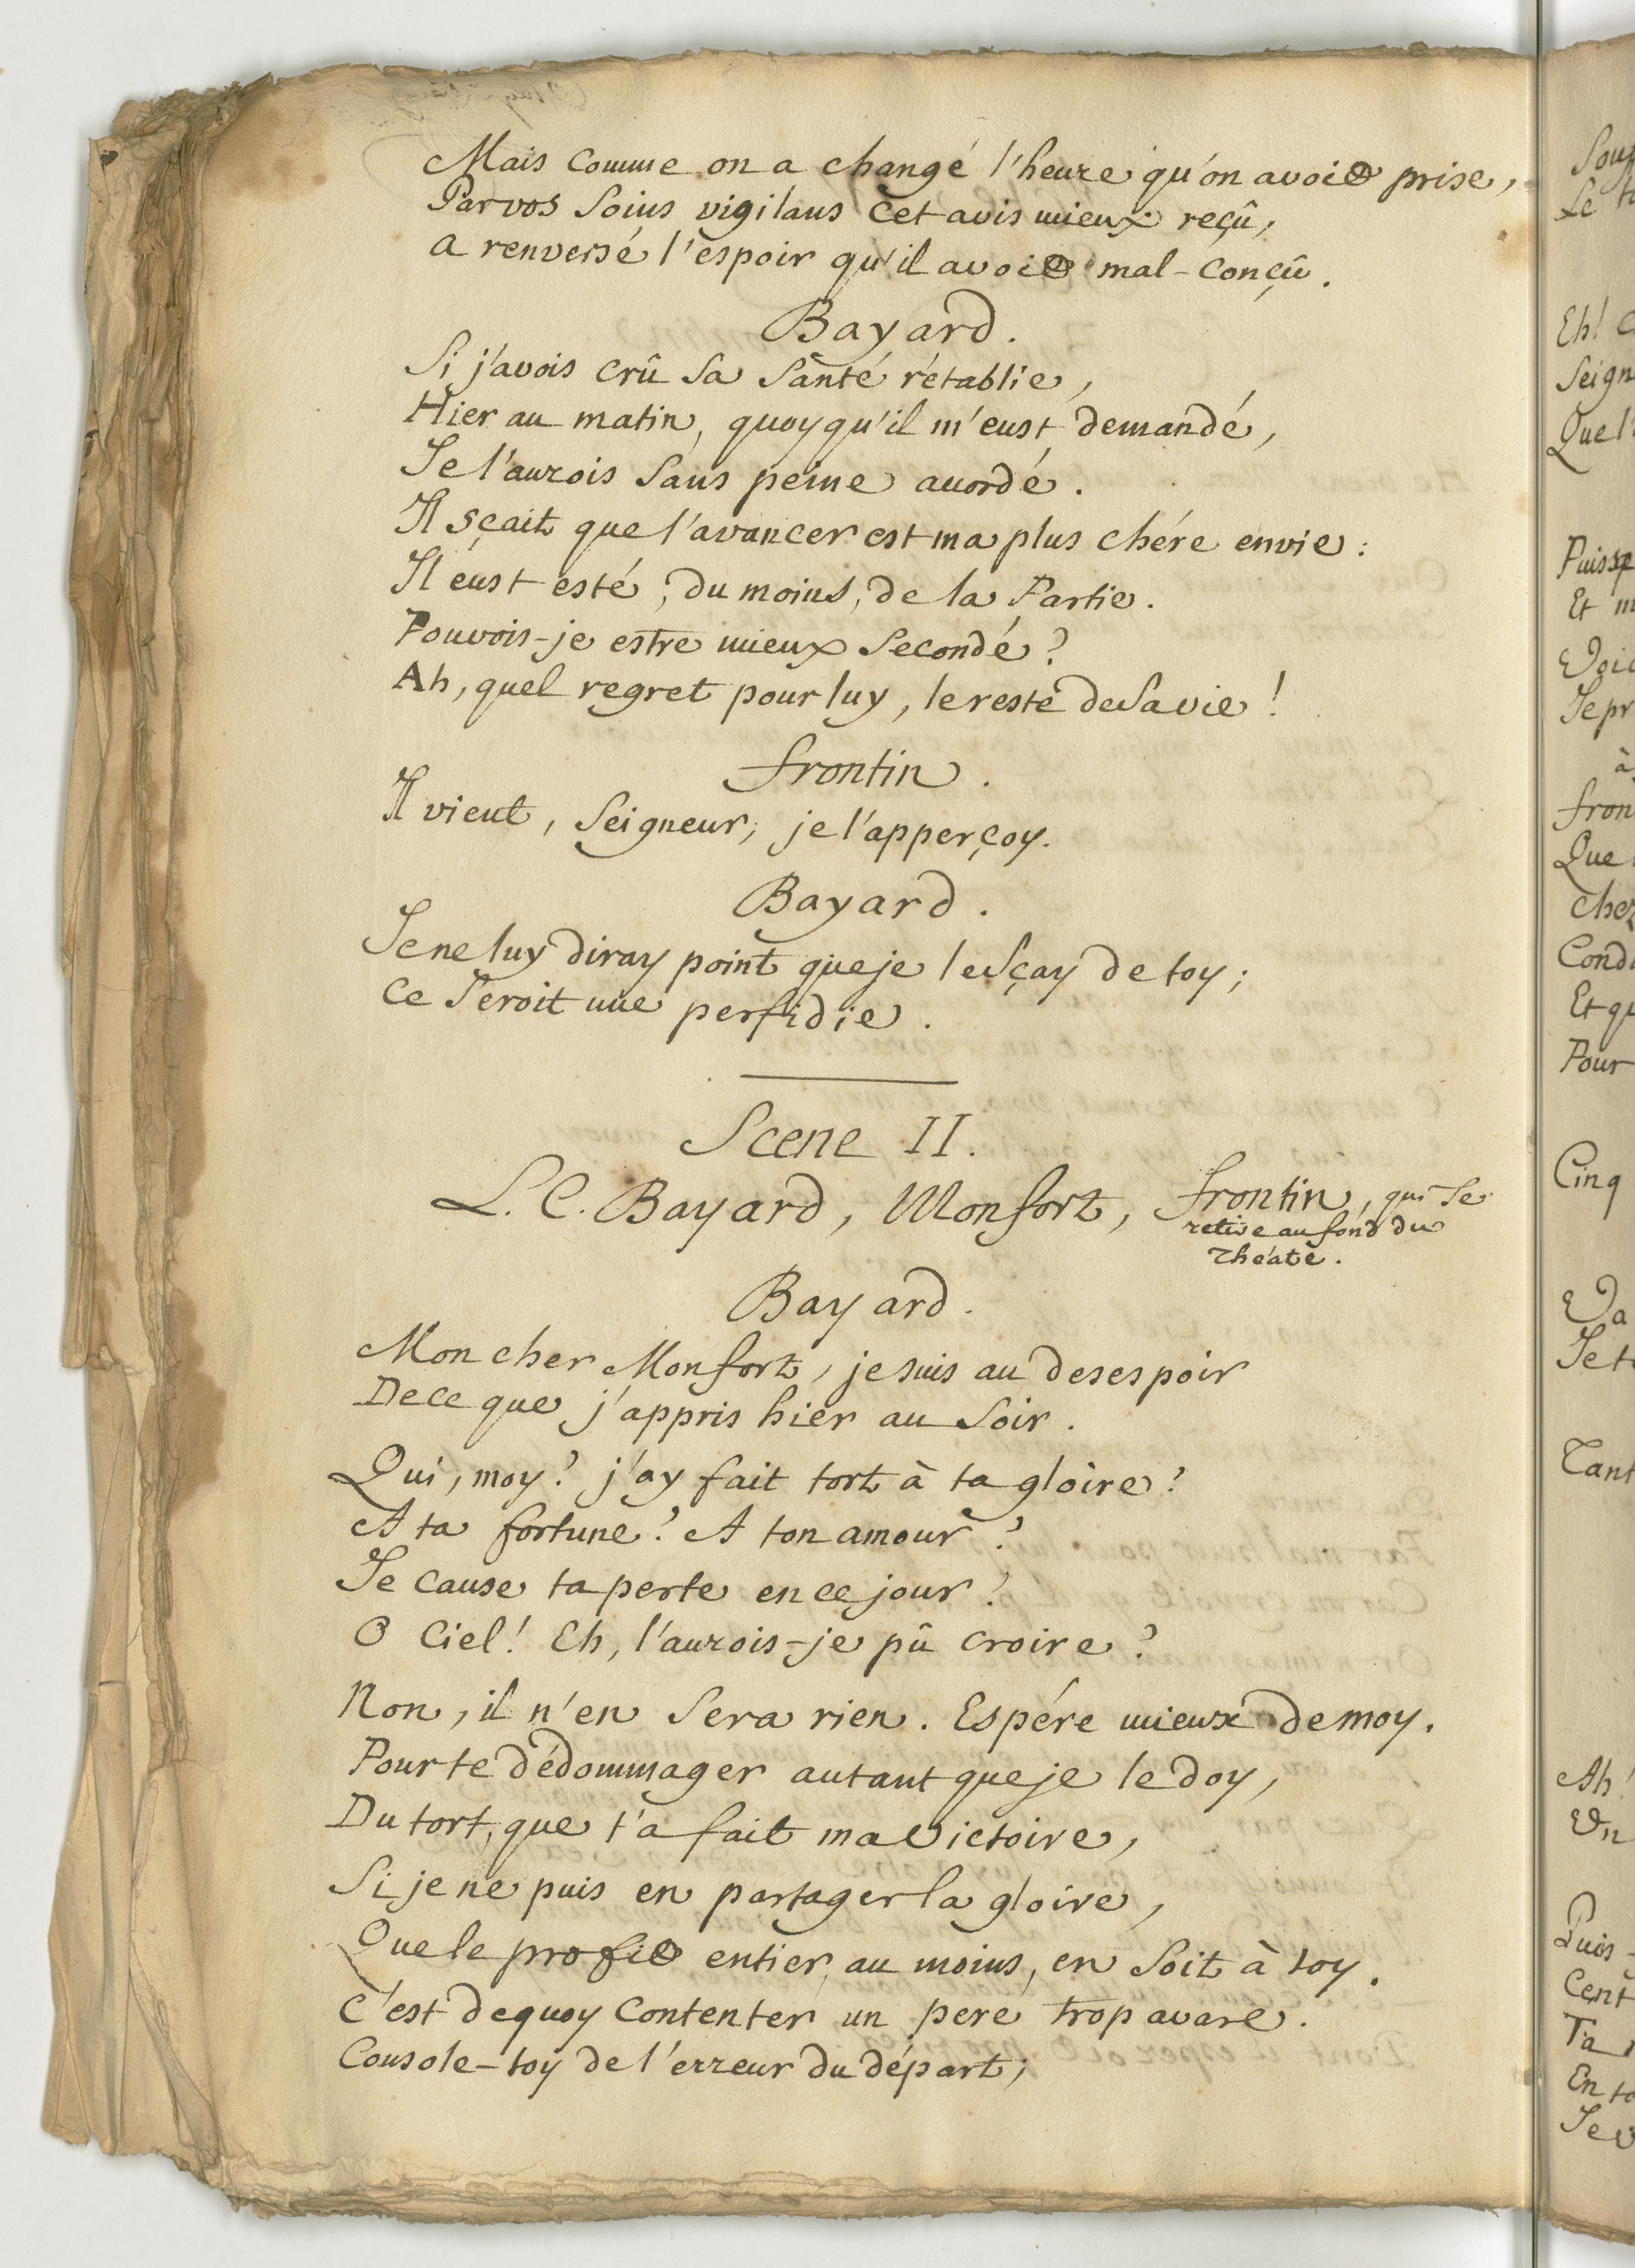 Mais comme on a changé l'heure qu'on avoit prise,
Par vos Soins vigilans cet avis mieux reçû,
a renversé l'espoir qu'il avoit mal-conçû.
Bayard.
Si j'avois crû sa Santé rétablie,
Hier au matin, quoyqu'il m'eust demandé,
Je l'aurois Sans peine accordé.
Il sçait que l'avancer est ma plus chére envie:
Il eust esté, du moins, de la Partie.
Pouvois-je estre mieux Secondé?
Ah, quel regret pour luy, le reste de Sa vie!
frontin.
Il vient, Seigneur; je l'apperçoy.
Bayard.
Je ne luy diray point que je le Sçay de toy;
Ce Seroit une perfidie.
Scene II.
L. C. Bayard, Monfort, frontin, qui se
retire au fond du
Théatre.
Bayard.
Mon cher Monfort, je suis au desespoir
De ce que j'appris hier au Soir.
Qui, moy? j'ay fait tort à ta gloire?
A ta fortune? A ton amour?
Je cause ta perte en ce jour?
O Ciel! Eh, l'aurois-je pû croire?
Non, il n'en Sera rien. Espére mieux de moy.
Pour te dédommager autant que je le doy,
Du tort, que t'a fait ma Victoire,
Si je ne puis en partager la gloire,
Que le profit entier, au moins, en Soit à toy.
C'est dequoy Contenter un pere trop avare.
Console-toy de l'erreur du départ;
Eh!
Seign
Quel
Puisse
Et m
Je pr
à
fron
Que
chez
Et qu
Pour
Cinq
Va
Je t
Tant
Ah!
Un
Puis-
Cent
Ta
En to